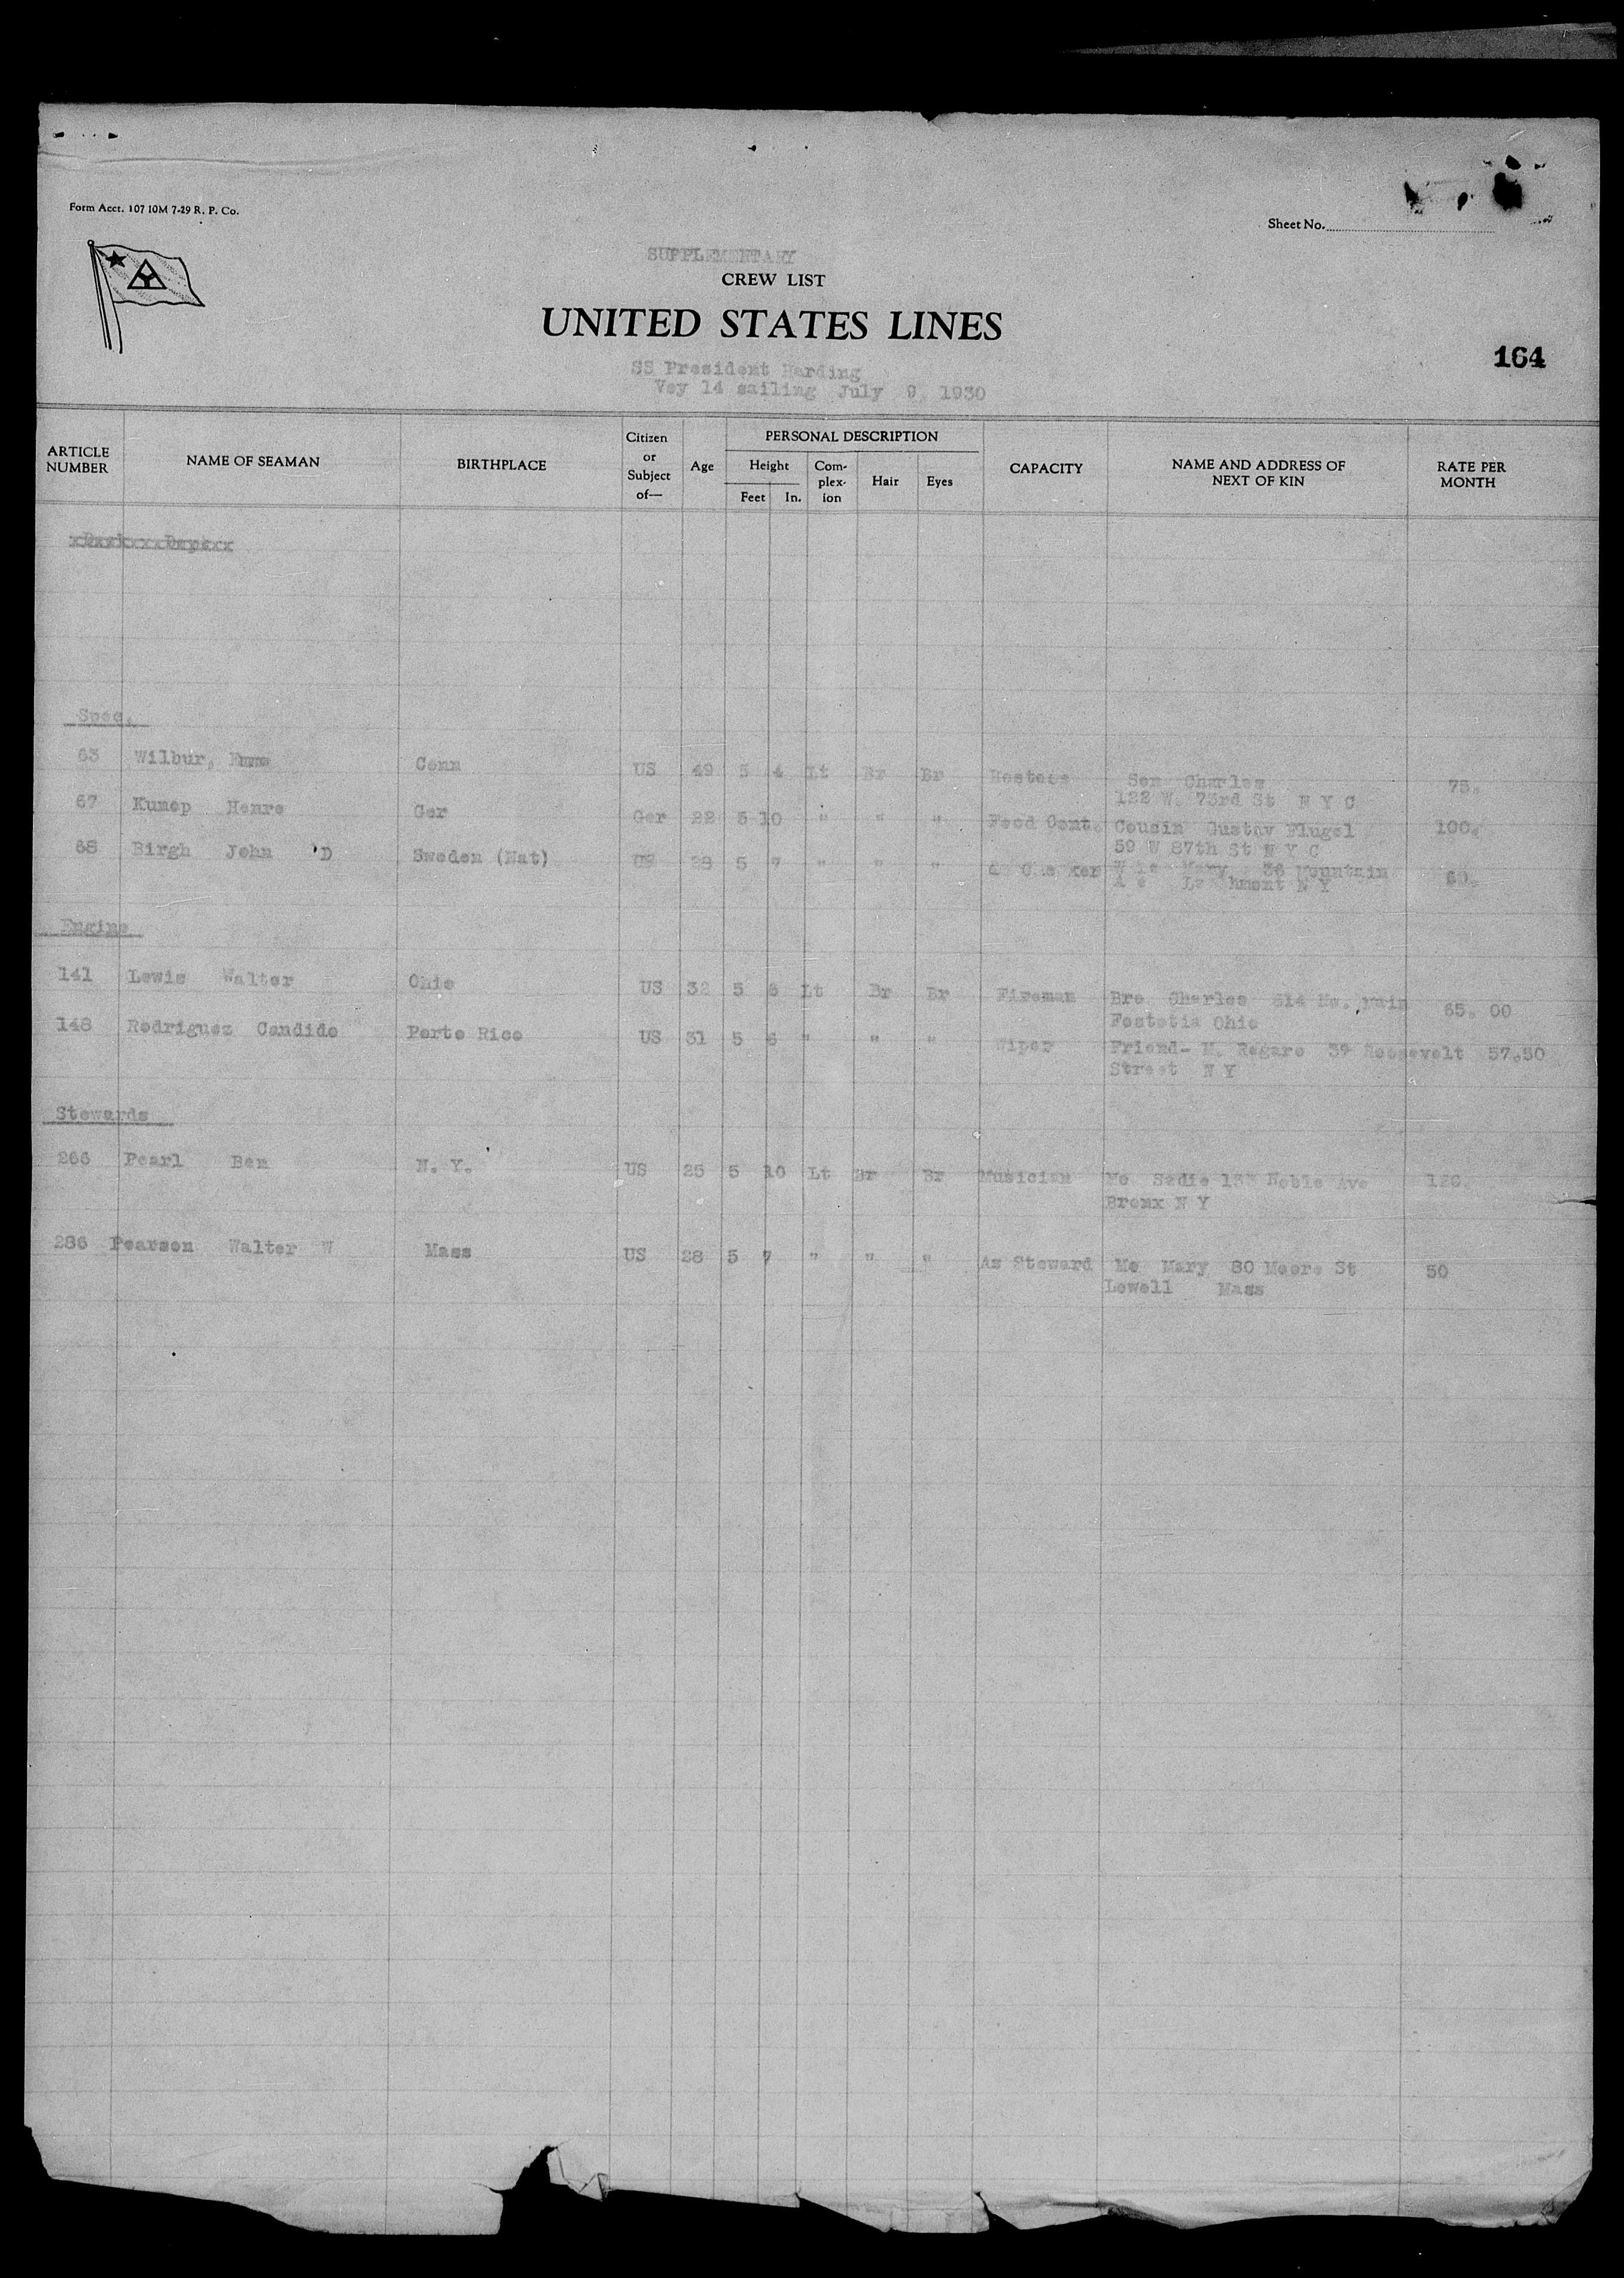 Form Acct. 107 10M 7-29 R. P. Co.
Sheet No.
SUPPLEMENTARY
CREW LIST
UNITED STATES LINES
164
SS President Harding
Voy 14 sailing July 9, 1930
ARTICLE NUMBER NAME OF SEAMAN BIRTHPLACE Citizen or Subject of— Age PERSONAL DESCRIPTION Height Feet In. Com-plex-ion Hair Eyes CAPACITY NAME AND ADDRESS OF NEXT OF KIN RATE PER MONTH
Spec.
63 Wilbur, Emma Conn US 49 5 4 Lt Br Br Hostess Son Charles 75.
122 W. 73rd St N Y C
67 Kumep Henre Ger Ger 22 5 10 " " " Food Cont. Cousin Gustav Flugel 100.
59 W 87th St N Y C
68 Birgh John D Sweden (Nat) US 28 5 7 " " " Mary 36 Mountain
hmont N Y
Engine
141 Lewis Walter Ohio US 32 5 6 Lt Br Br Fireman Bro Charles 614 No. 65.00
Fostotia Ohio
148 Rodriguez Candido Porto Rico US 31 5 6 " " " Wiper Friend- M. Regaro 39 Roosevelt 57.50
Street N Y
Stewards
266 Pearl Ben N. Y. US 25 5 10 Lt Br Br Musician Mo Sadie Noble Ave 120.
Bronx N Y
286 Pearson Walter W Mass US 28 5 7 " " " As Steward Mo Mary 80 Moore St 50
Lowell Mass